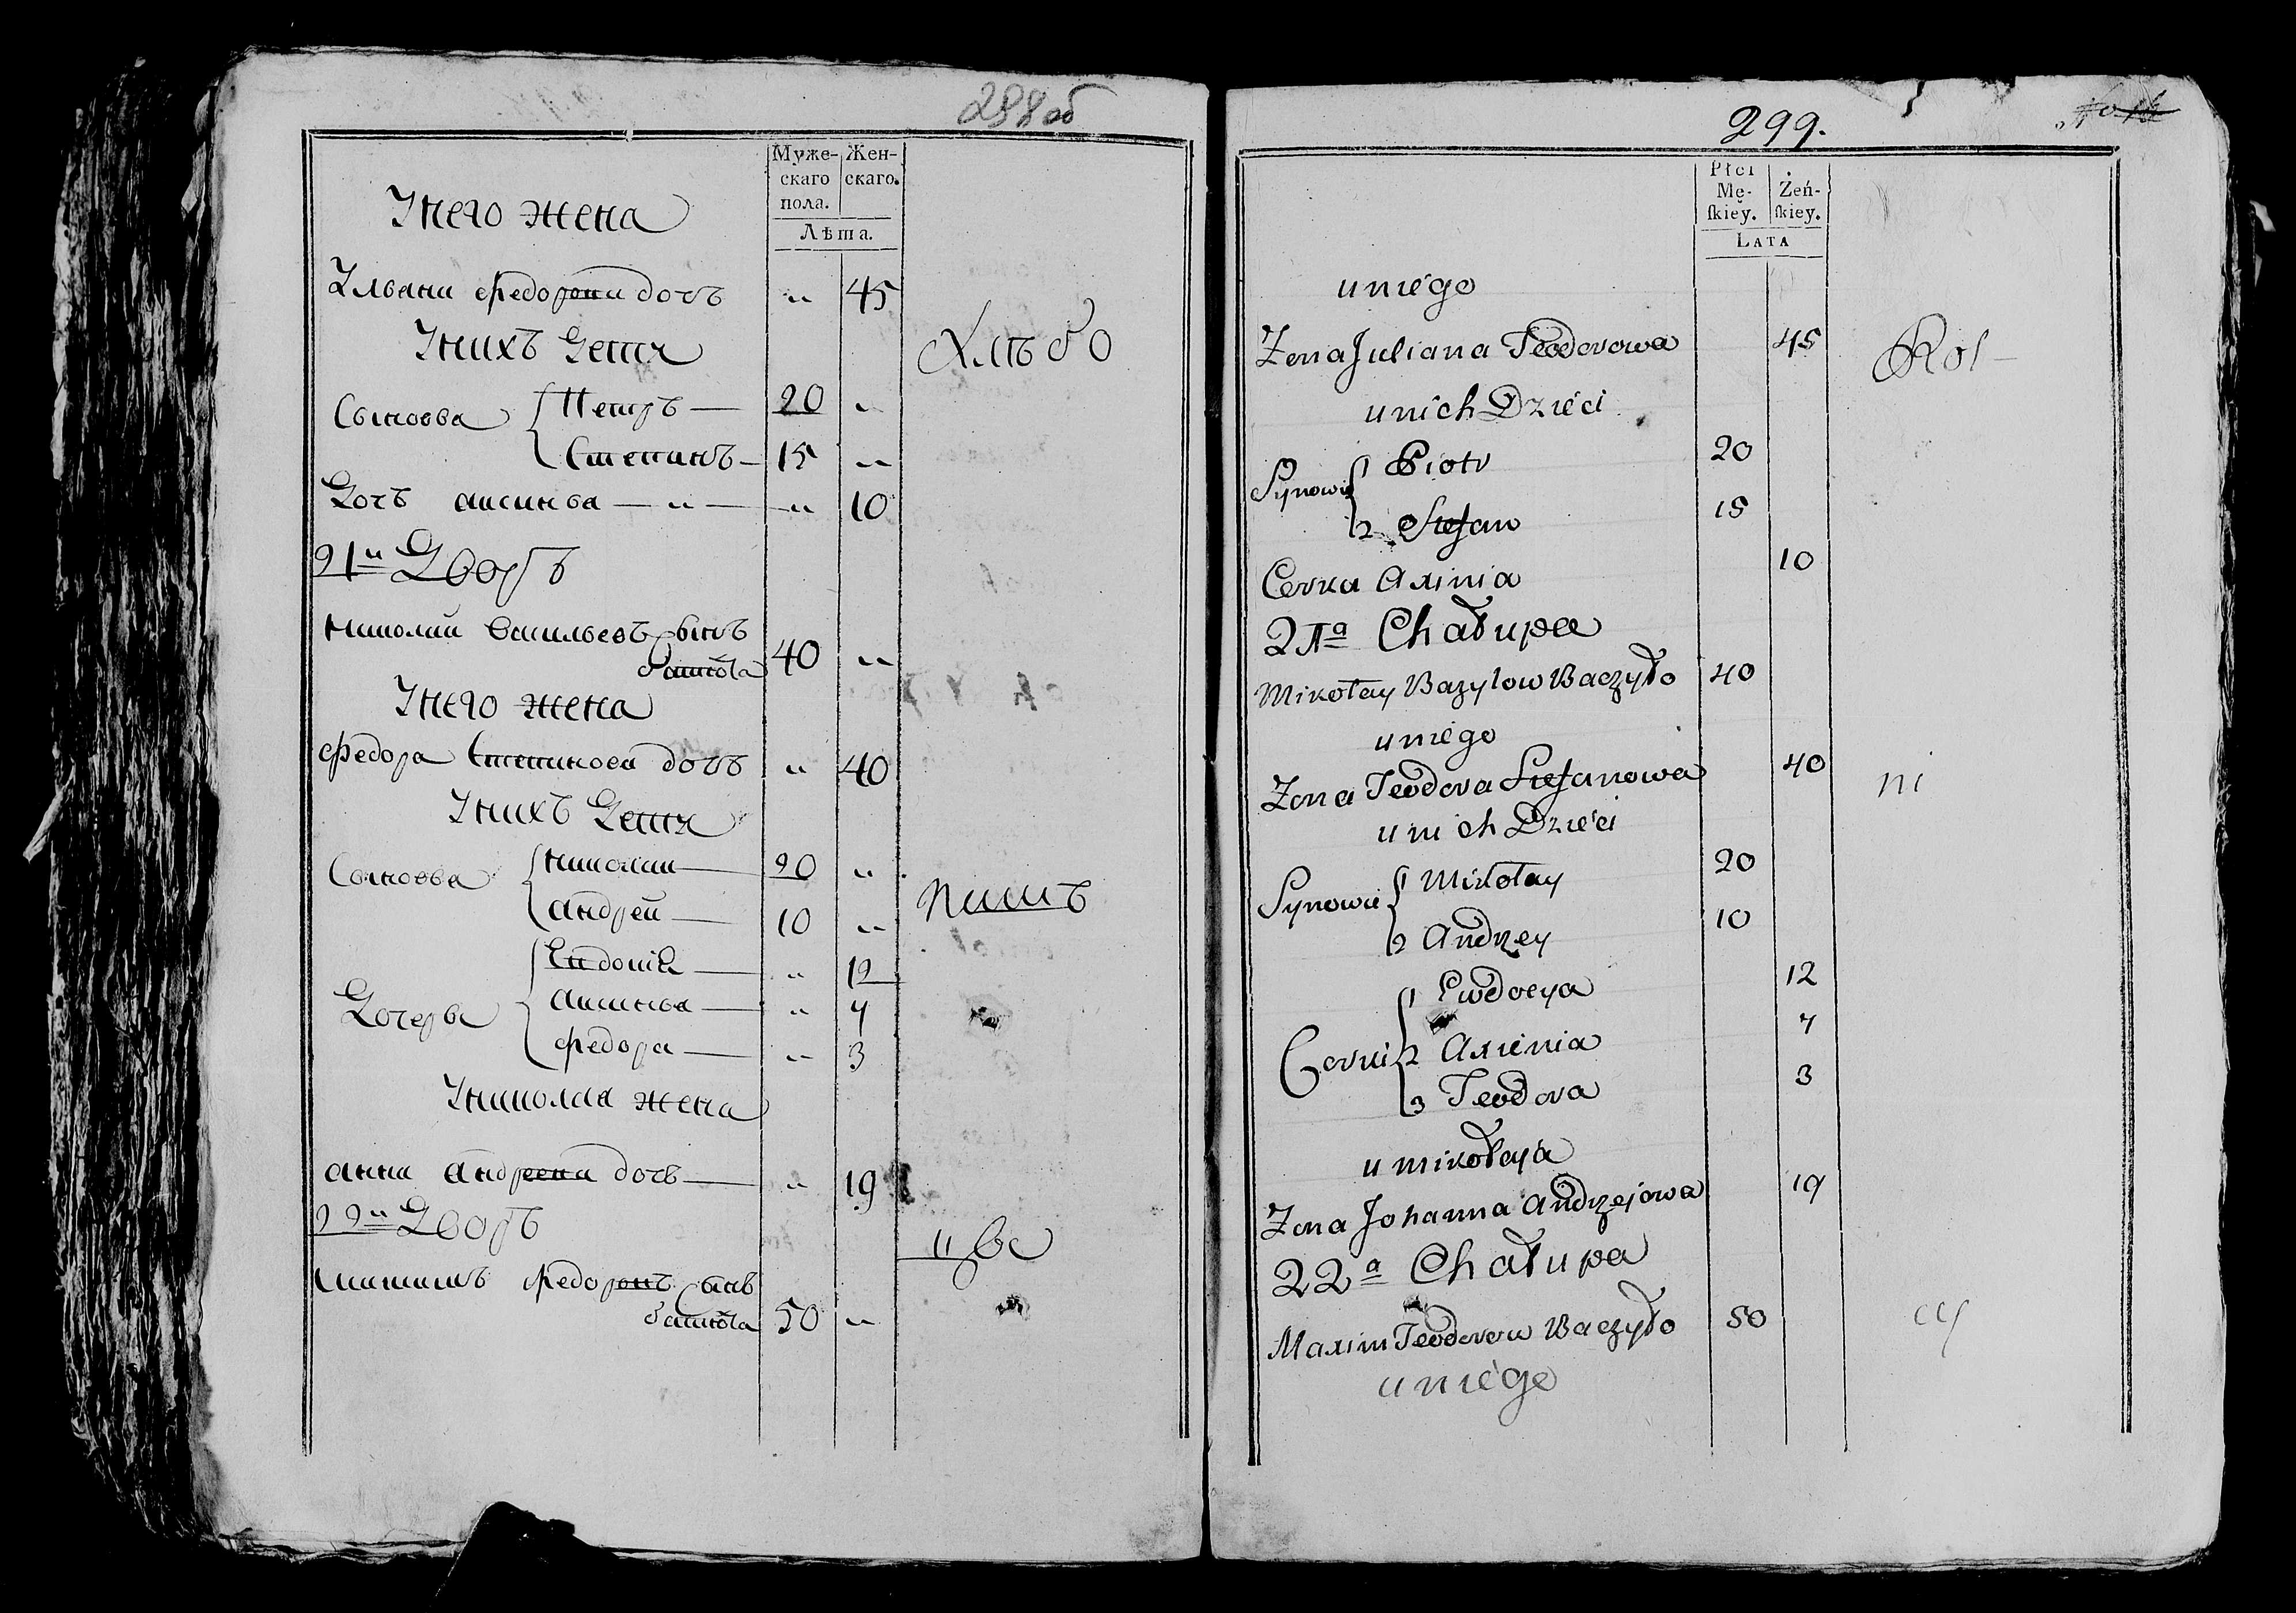 298 об
Муже-
скаго
пола.
Жен-
скаго.
Лѣта.
Унего жена
Ульяна Федорова дочь " 45
Унихъ Дети
Хлѣбо
Сыновья Петръ 20 "
Степанъ 15 "
Дочь аксинья " " 10
21й Дворъ
николай Васильевъ Сынъ
40 "
Унего жена
Федора Степанова дочь " 40
Унихъ Дети
Сыновья николай 20 "
андрей 10 "
пашъ
Евдокия " 12
Дочерьи аксинья " 7
Федора " 3
Униколая жена
анна андреева дочь " 19
22й Дворъ
цы
максимъ Федоровъ Сынъ
50 "
299.
Płci
Mę-
skiey.
Żeń-
skiey.
Lata
uniégo
Zona Juliana Teodorowa 45
Rol-
unich Dziéci
Synowie 1 Piotr 20
2 Stefan 15
Corka Axinia 10
21a Chałupa
Mikołay Bazylow Baczyło 40
uniégo
Zona Teodora Stefanowa 40
ni
unich Dziéci
Synowie 1 Mikołay 20
2 Andrzey 10
1 Ewdocya 12
Corki 2 Axienia 7
3 Teodora 3
u mikołaja
Zona Johanna Andrzejowa 19
22a Chałupa
Maxim Teodorow Baczyło 50
cy
uniégo